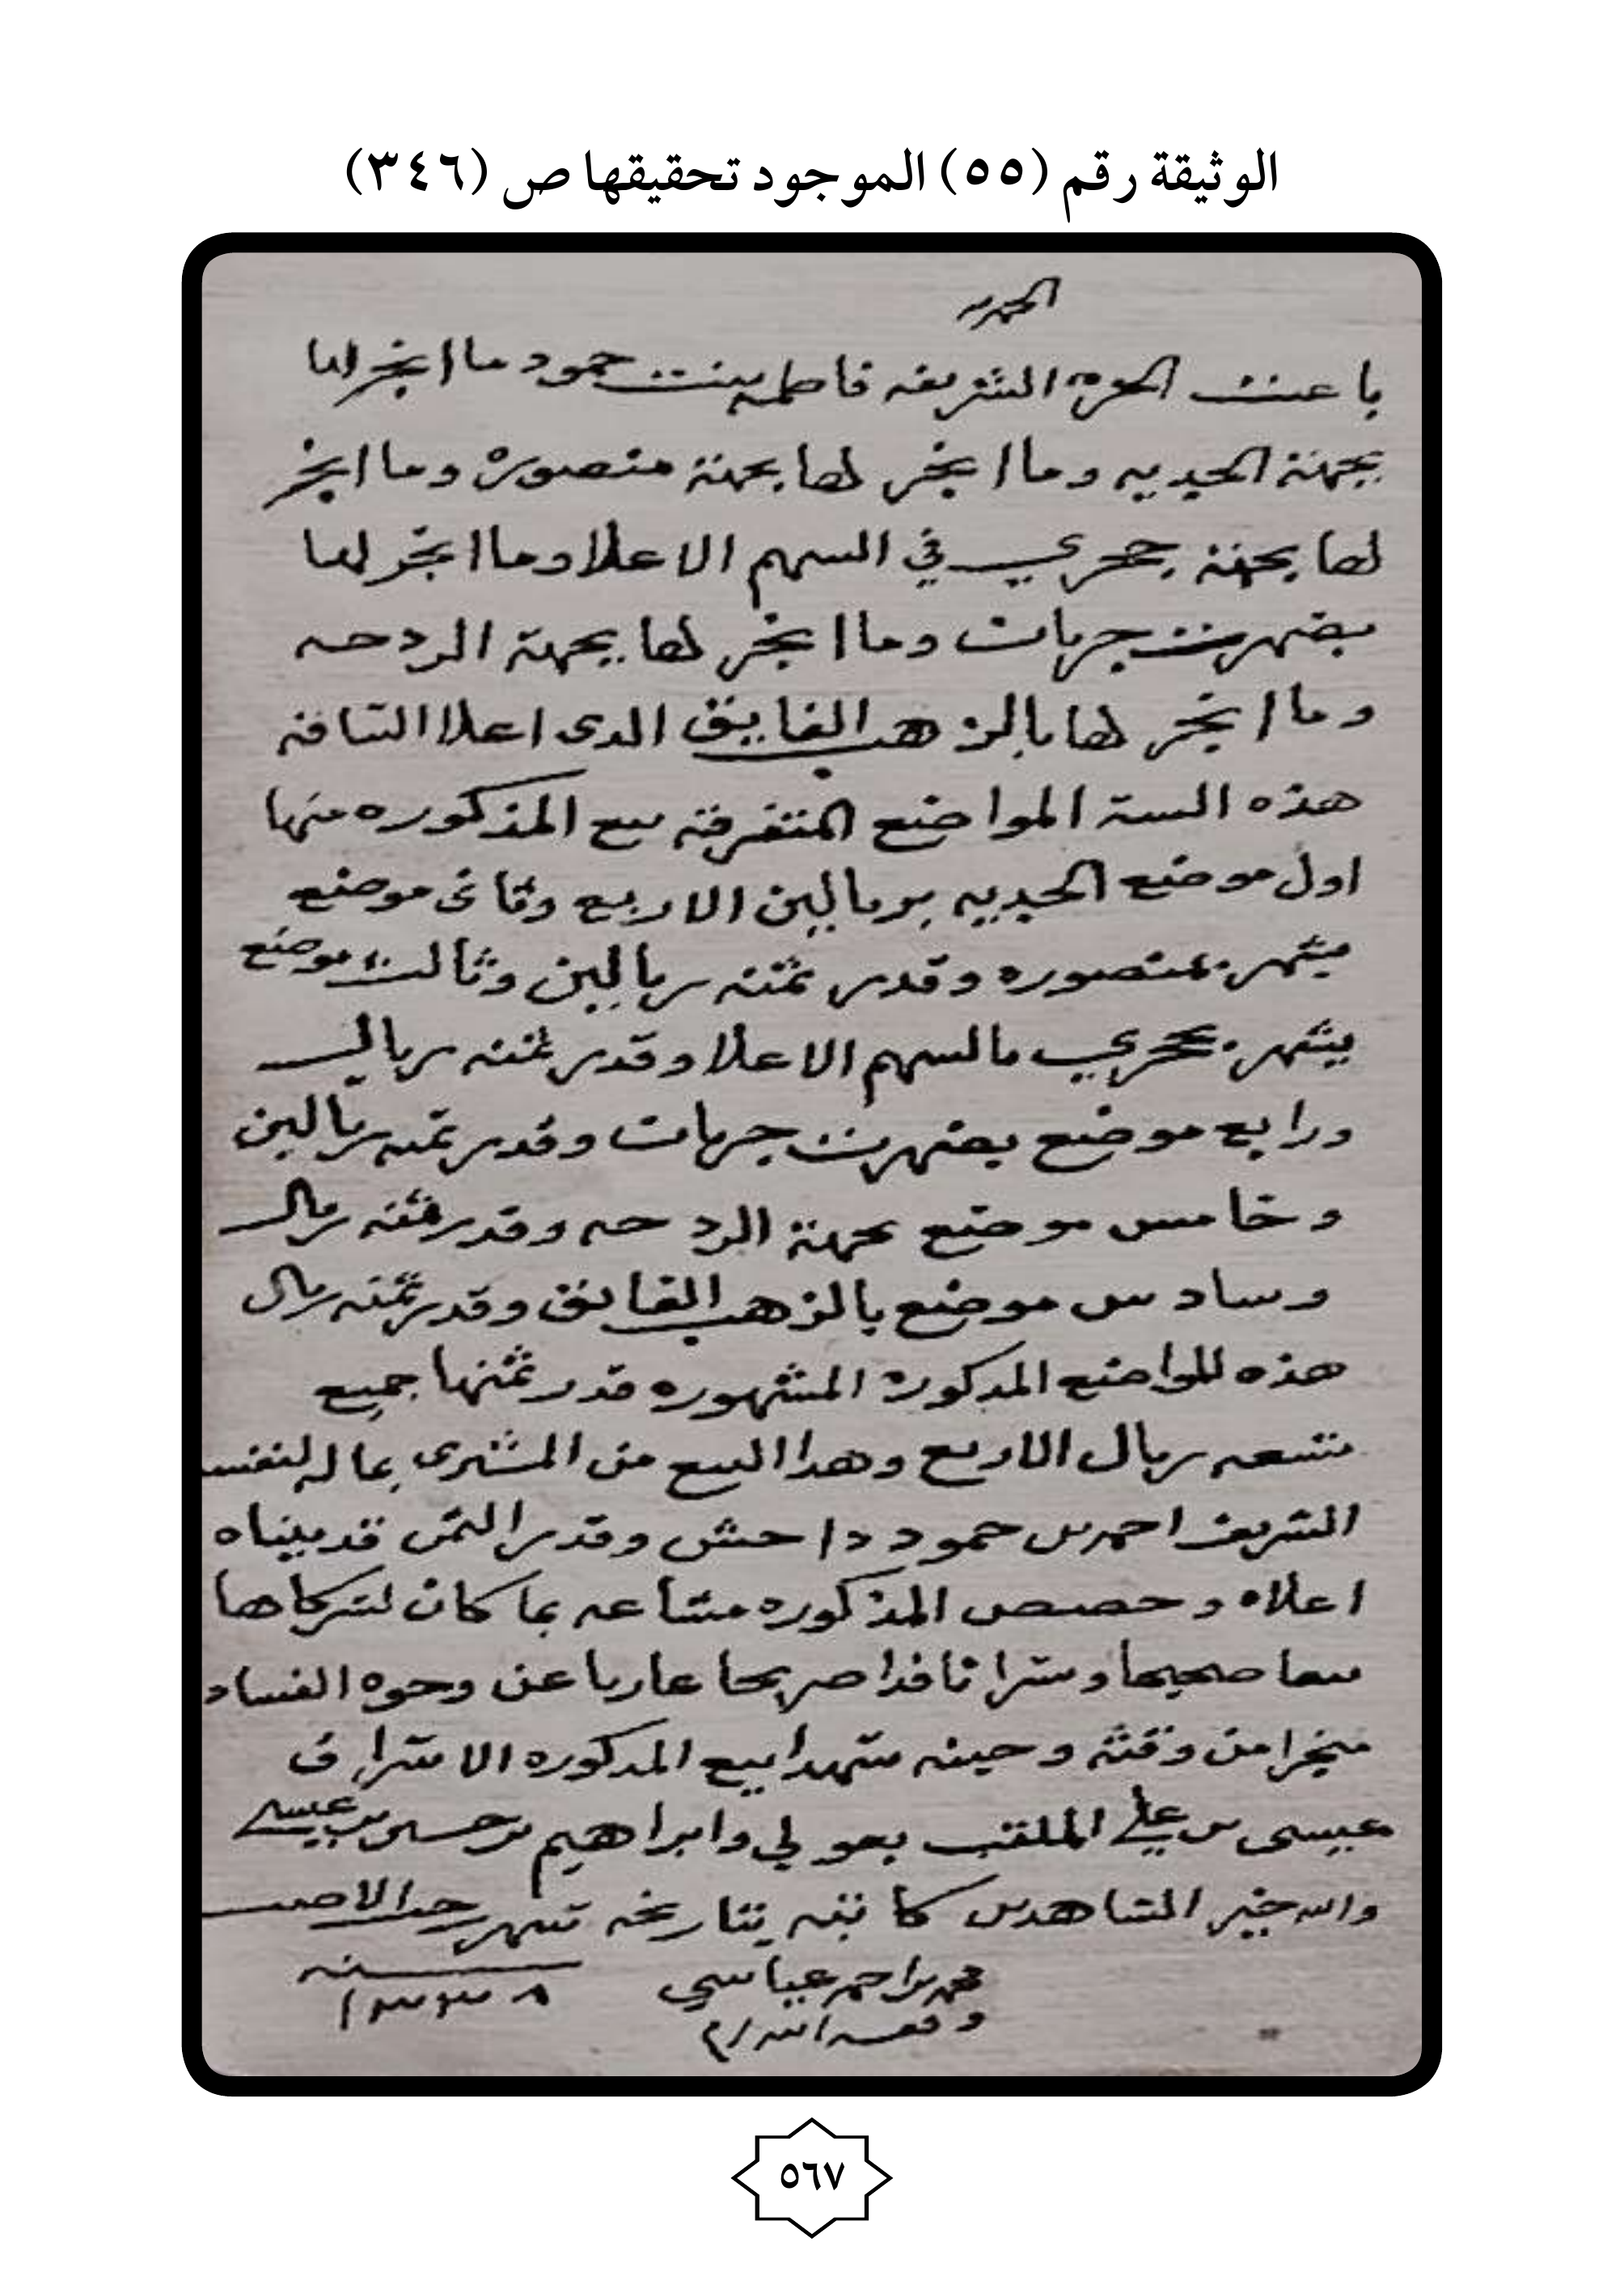 الوثيقة رقم (٥٥) الموجود تحقيقها ص (٣٤٦)
الحمد لله
باعت الحرة الشريفه فاطمه بنت حمود ما انجر لها
بجهة الحيديه وما انجر لها بجهة منصوره وما انجر
لها بجهة جحري في السهم الاعلا وما انجر لها
جربات وما انجر لها بجهة الردحه
وما انجر لها بالزهب الفايق الدى اعلا الشافه
هذه الستة المواضع المتفرقه بيع المذكوره منها
اول موضع الحيديه بريالين الاربع وثانى موضع
يشهر بمنصوره وقدر ثمنه ريالين وثالث موضع
يشهر بجحري بالسهم الاعلا وقدر ثمنه ريال
ورابع موضع جربات وقدر ثمنه ريالين
وخامس موضع بجهة الردحه وقدر ثمنه ريال
وسادس موضع بالزهب الفايق وقدر ثمنه ريال
هذه المواضع المدكورة المشهوره قدر ثمنها جميع
تسعه ريال الاربع وهدا البيع من المشترى بماله لنفسه
الشريف احمد بن حمود داحش وقدر الثمن قد بيناه
اعلاه وحصص المذكوره مشاعه بما كان لشركاها
بيعا صحيحا وشرا نافدا صريحا عاريا عن وجوه الفساد
من وقته وحينه شهدا ببيع المدكوره الاشراف
عيسى بن علي الملقب بعولي وابراهيم بن حسن بن عيسى
والله خير الشاهدين كاتبه بتاريخه شهر رجب الاصب
محمد بن احمد عباسي سنه
وفقه الله ١٣٣٨
٥٦٧